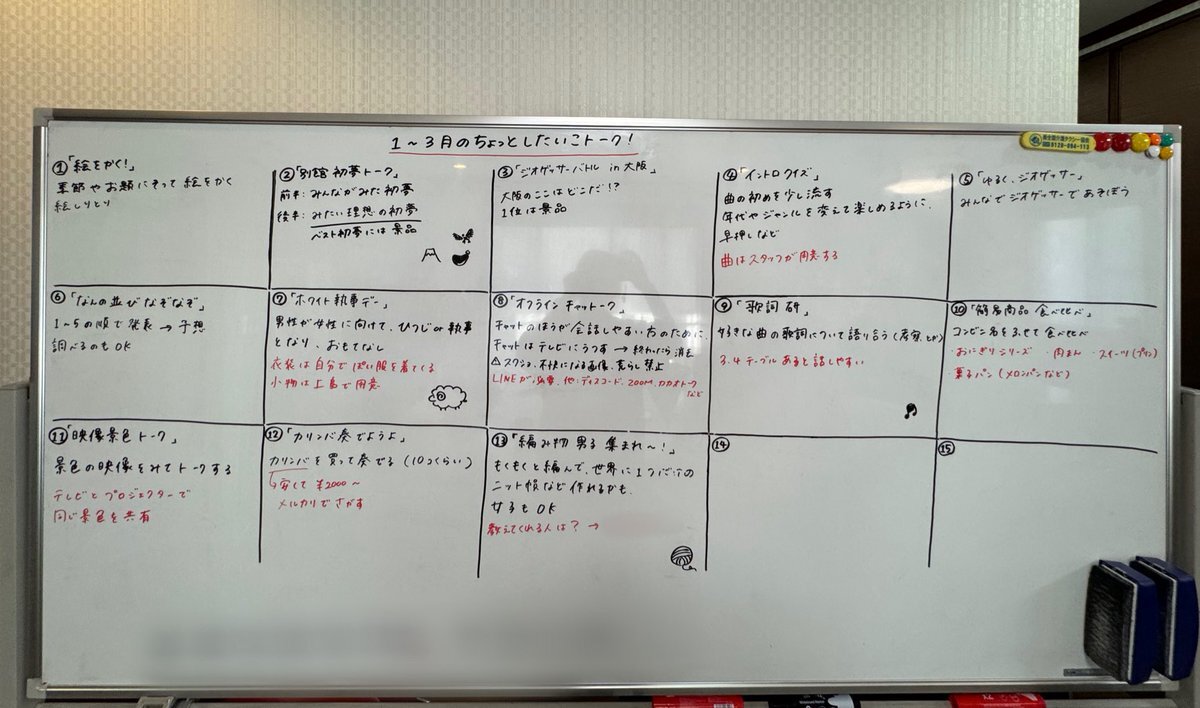 1～3月のちょっとしたいこトーク!
①「絵をかく!」
季節やお題にそって絵をかく
絵しりとり
②「別館 初夢トーク」
前半:みんながみた初夢
後半:みたい理想の初夢
ベスト初夢には景品
③「ジオゲッサーバトル in 大阪」
大阪のここはどこだ!?
1位は景品
④「イントロクイズ」
曲の初めを少し流す
年代やジャンルを変えて楽しめるように.
早押しなど
曲はスタッフが用意する
⑤「ゆるく、ジオゲッサー」
みんなでジオゲッサーであそぼう
⑥「なんの並びなぞなぞ」
1～5の順で発表→予想
調べるのもOK
⑦「ホワイト執事デー」
男性が女性に向けて、ひつじor執事
となり、おもてなし
衣装は自分でぽい服を着てくる
小物は上島で用意
⑧「オフラインチャットーク」
チャットのほうが会話しやすい方のために.
チャットはテレビにうつす→終わったら消去
⚠スクショ、不快になる画像、荒らし禁止
LINEが必要、他:ディスコード、ZOOM、カカオトーク
など
⑨「歌詞 研」
好きな曲の歌詞について語り合う(居家とか)
3.4テーブルあると話しやすい
⑩「簡易商品 食べ比べ」
コンビニ名をふせて食べ比べ
・おにぎりシリーズ ・肉まん ・スイーツ(プリン)
・菓子パン(メロンパンなど)
⑪「映像景色トーク」
景色の映像をみてトークする
テレビとプロジェクターで
同じ景色を共有
⑫「カリンバ奏でようよ」
カリンバを買って奏でる(10コくらい)
↳安くて¥2000～
メルカリでさがす
⑬「編み物 男子 集まれ～!」
もくもくと編んで、世界に1つだけの
ニット帽など作れるかも.
女子もOK
教えてくれる人は?→
⑭
⑮
0120-094-113